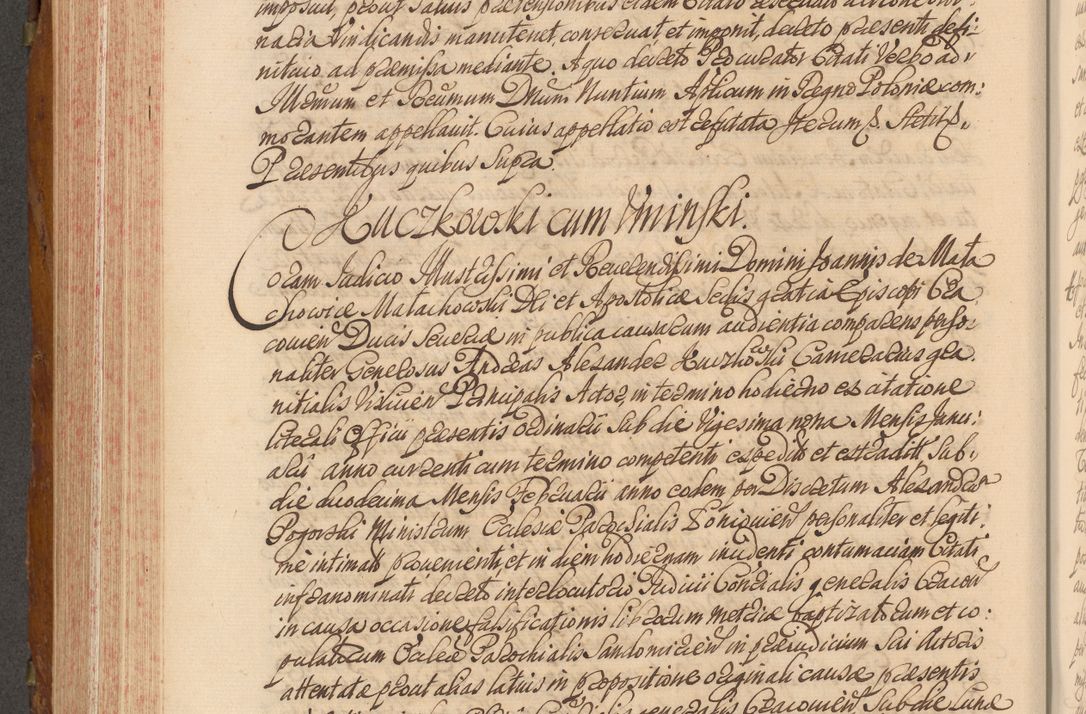 imposuit, prout salvis praetensionibus eidem Citato
naria vindicandis manutenet, conservat et imponit, decreto praesenti defi-
nitivo ad praemissa mediante. A quo decreto Procurator Citati Verbo ad
Illmum et Reumum Dnum Nuntium Aplicum in Regno Poloniae com:
morantem appellavit. Cuius appellatio est reputata
Praesentibus quibus supra.
Kuczkowski cum Uminski.
Coram Judicio Illustrissimi et Reverendissimi Domini Joannis de Mala
chowice Małachowski Dei et Apostolicae Sedis gratia Episcopi Cra
covien Ducis Severiae in publica causarum audientia comparens perso-
naliter Generosus Andreas Alexander Kuczkowski Camerarius gra
nitialis Principalis Actor, in termino hodierno ex citatione
literali Officii praesentis ordinarii sub die Vigesima nona Mensis Janu:
arii anno currenti cum termino competenti expedit et extradit sub
die duodecima Mensis Februarii anno eodem per Discretum Alexandrum
Pogorski Ministrum Ecclesiae Parochialis personaliter et legiti
me intimat provenienti, et in diem hodiernam incidenti contumaciam Citati
infranominati decreto interlocutorio Judicii Consralis generalis Cracovien
in causa occasione falsificationis librorum metricae baptizatorum et co:
pulatorum Ecclae Parochialis Sandomirien in praejudicium sui Actoris
attentatae prout alias latius in propositione originali causae praesentis
generalis Cracovien sub die Lunae